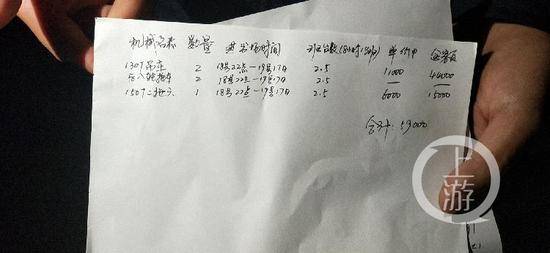 机械名称 数量 进出场时间 班台数(8小时1台班) 单价甲 金额
130T吊车 2 18号22点—19号17点 2.5 11000 44000
2 18号22点—19号17点 2.5
150T 1 18号22点—19号17点 2.5 6000 15000
合计:59000
上游